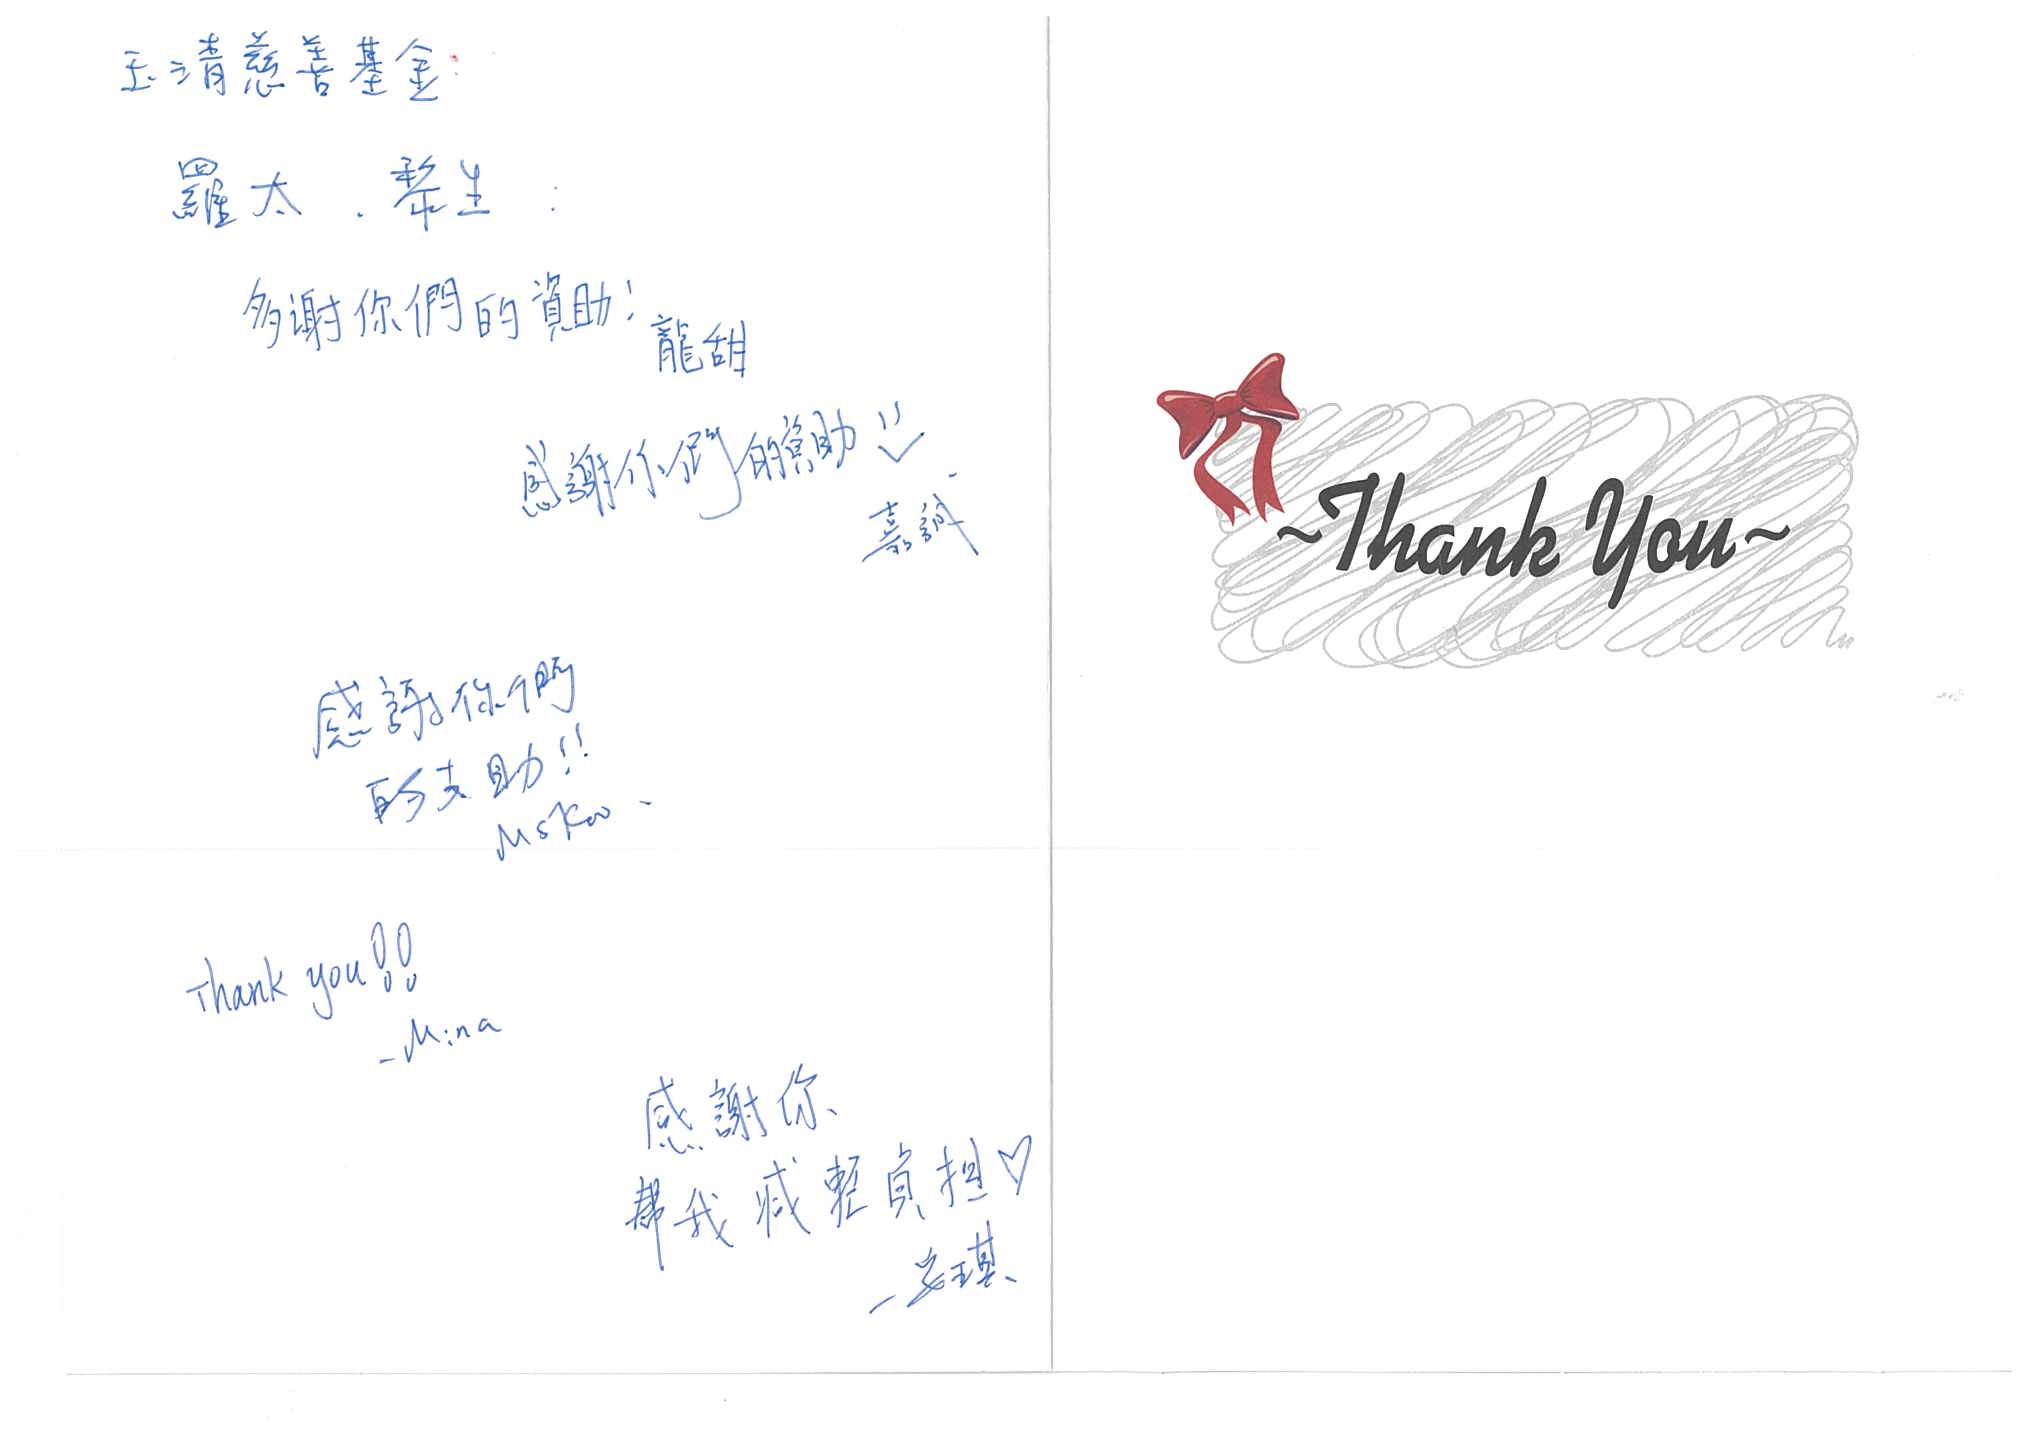 玉清慈善基金:
羅太.黎生:
多謝你們的資助!
龍甜
感謝你們的資助!!
嘉誠
感謝你們
的支助!!
Ms Koo
Thank you!!
-Mina
感謝你
幫我減輕負担♡
-安琪
~Thank You~